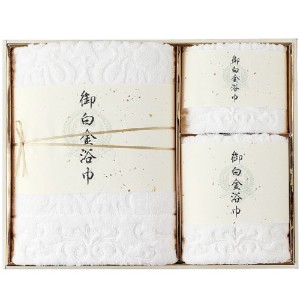 御白金浴巾
御白金浴巾
御白金浴巾